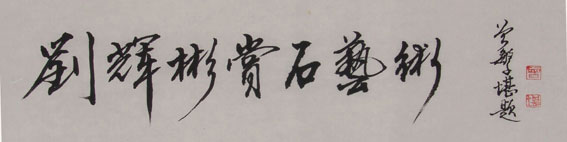 劉輝彬賞石藝術
堪題